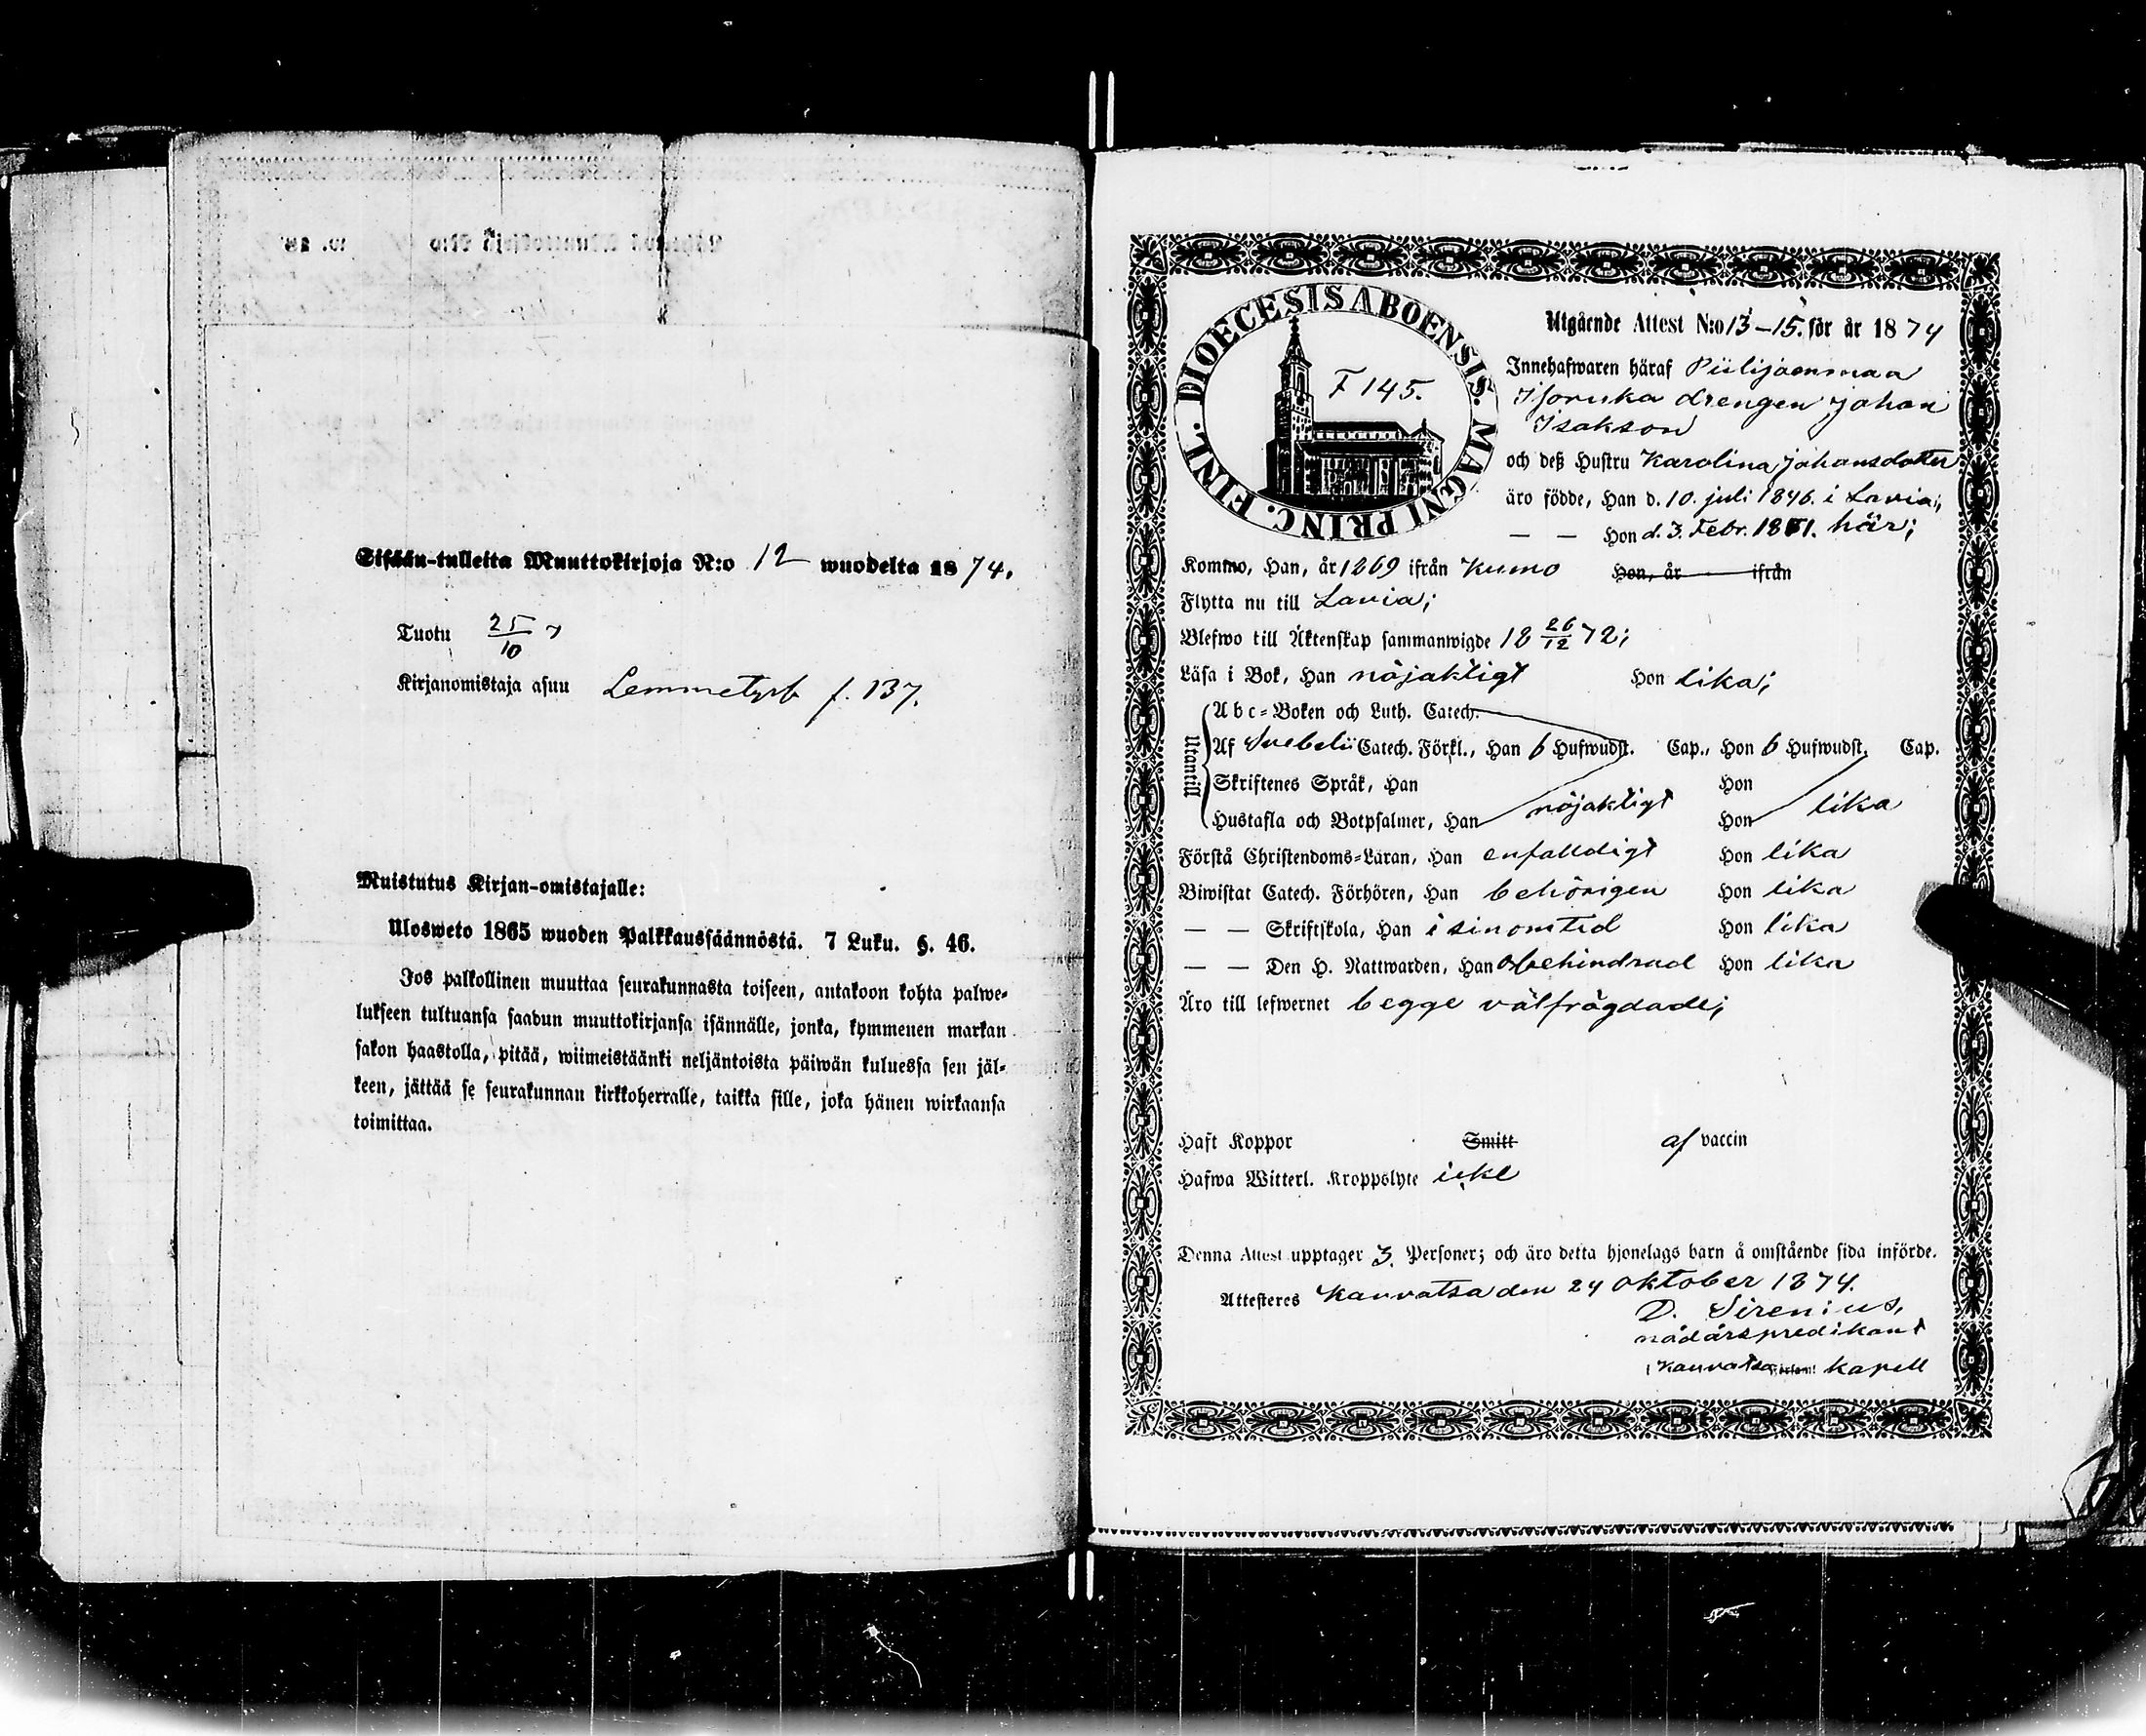 Sisään-tulleita Muuttokirjoja N:o 12 wuodelta 1874.
Tuotu 25/10
Kirjanomistaja asuu Lemmetyrb f. 137.
Muistutus Kirjan-omistajalle:
Ulosweto 1865 wuoden Palkkaussäännöstä. 7 Luku. §. 46.
Jos palkollinen muuttaa seurakunnasta toiseen, antakoon kohta palwe-
lukseen tultuansa saadun muuttokirjansa isännälle, jonka, kymmenen markan
sakon haastolla, pitää, wiimeistäänki neljäntoista päiwän kuluessa sen jäl-
keen, jättää se seurakunnan kirkkoherralle, taikka sille, joka hänen wirkaansa
toimittaa.
DIOECESIS ABOENSIS. MAGNI PRINC. FINL.
F 145.
Utgående Attest N:o 13–15. för år 1874
Innehafwaren häraf Piilijoensuu
drengen Johan
Isakson
och deß Hustru Karolina Johansdotter
äro födde, Han d. 10. juli 1846. i Lavia;
— — Hon d. 3. Febr. 1851. här;
Kommo, Han, år 1869 ifrån Kumo Hon, år ifrån
Flytta nu till Lavia;
Blefwo till Äktenskap sammanwigde 18 26/12 72;
Läsa i Bok, Han nöjaktigt Hon lika;
Utantill
Abc-Boken och Luth. Catech.
Af Svebelii Catech. Förkl., Han 6 Hufwudst. Cap., Hon 6 Hufwudst. Cap.
Skriftenes Språk, Han Hon
Hustafla och Botpsalmer, Han nöjaktigt Hon lika
Förstå Christendoms-Läran, Han enfaldigt Hon lika
Biwistat Catech. Förhören, Han behörigen Hon lika
— — Skriftskola, Han i sinom tid Hon lika
— — Den H. Nattwarden, Han obehindrad Hon lika
Äro till lefwernet begge välfrägdade;
Haft Koppor Smitt af vaccin
Hafwa Witterl. Kroppslyte icke
Denna Attest upptager 3. Personer; och äro detta hjonelags barn å omstående sida införde.
Attesteres Kauvatsa den 24 oktober 1874.
D. Sirenius,
nådårspredikant
i Kauvatsa kapell